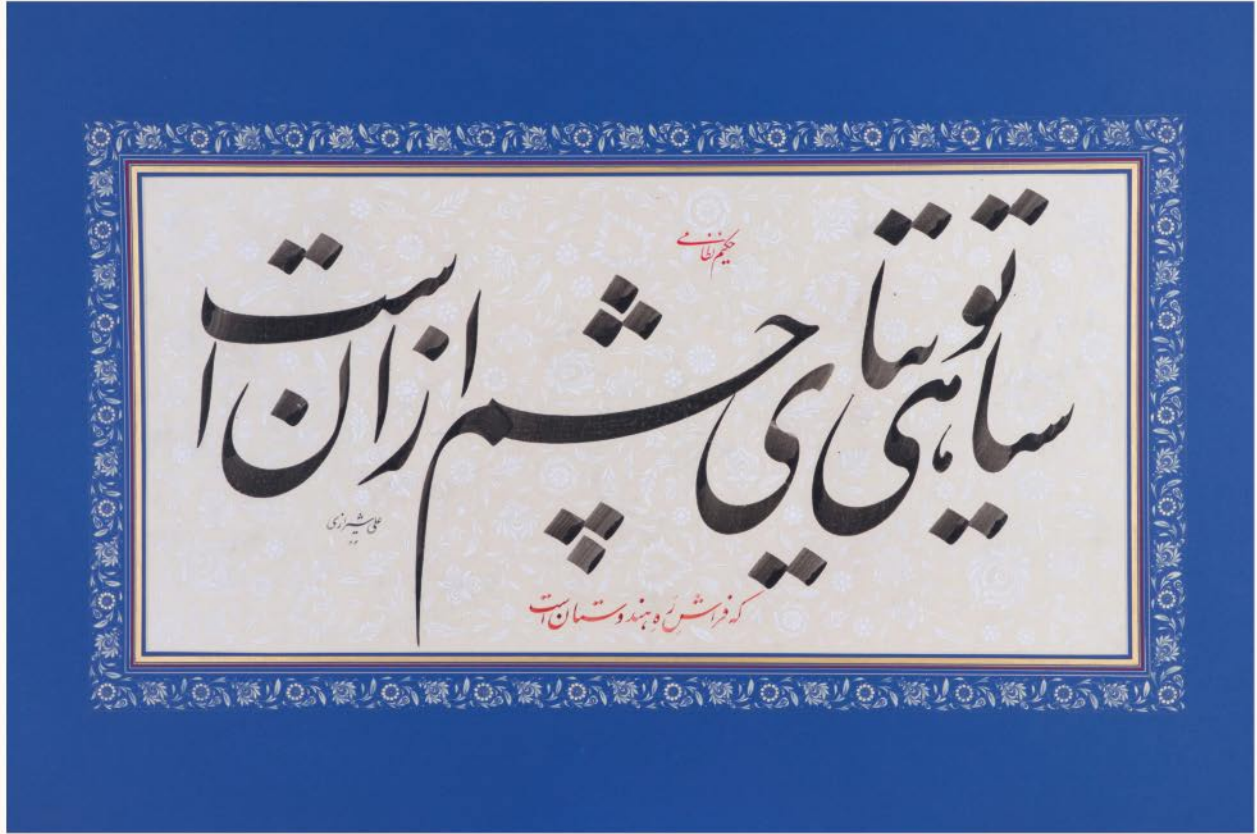 حکیم نظامی
سیاهی توتیای چشم ازان است
علی شیرازی
که فراشِ رَهِ هندوستان است